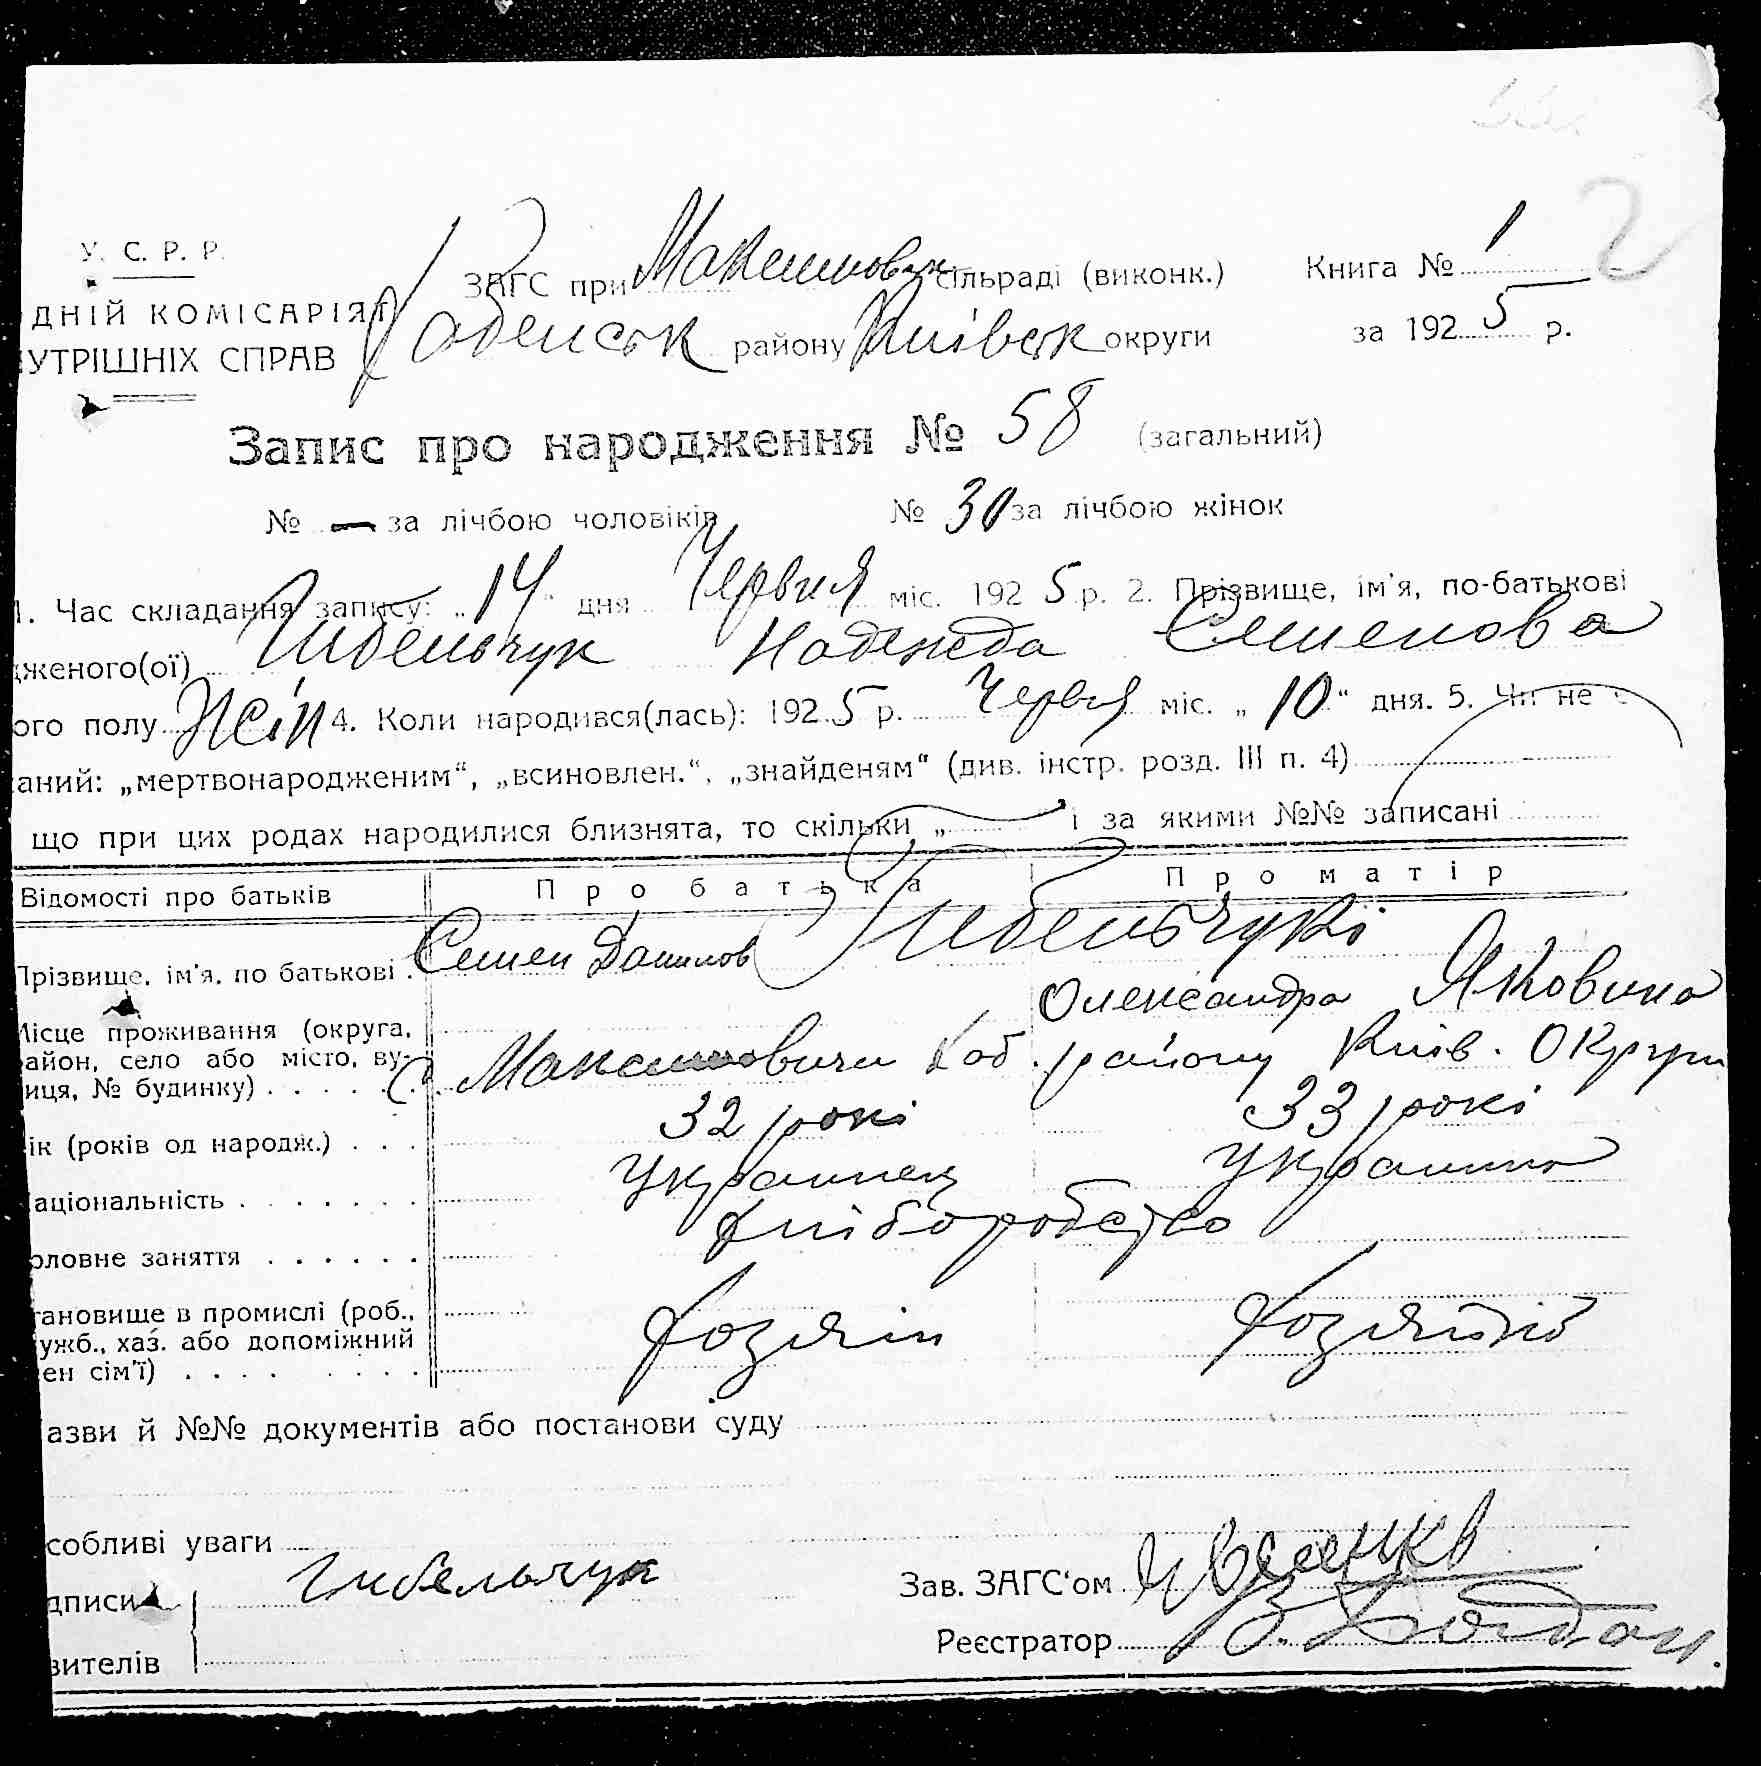 У. С. Р. Р.
ЗАГС при Максимович сільраді (виконк.) Книга № 1
2
ДНІЙ КОМІСАРІЯТ
УТРІШНІХ СПРАВ
району Київськ округи за 1925 р.
Запис про народження № 58 (загальний)
№ — за лічбою чоловіків № 30 за лічбою жінок
1. Час складання запису: „14" дня Червня міс. 1925 р. 2. Прізвище, ім'я, по-батькові
дженого(ої) Гибельчук Надежда Семенова
ого полу Жін 4. Коли народився(лась): 1925 р. Червня міс. „10" дня. 5. Чи не
аний: „мертвонародженим", „всиновлен.", „знайденям" (див. інстр. розд. III п. 4)
що при цих родах народилися близнята, то скільки „ і за якими №№ записані
Відомості про батьків Про батька Про матір
Гибельчукі
Прізвище, ім'я, по батькові Семен Данилов
Олександра Яковина
Місце проживання (округа,
айон, село або місто, ву-
иця, № будинку) с. Максимовичи Хаб. району Київ. Округи
ік (років од народж.) 32 рокі 33 рокі
аціональність Украинец Украинка
оловне заняття Хліборобство
тановище в промислі (роб.,
ужб., хаз. або допоміжний
ен сім'ї) Хозяїн
азви й №№ документів або постанови суду
собливі уваги
дписи Гибельчук Зав. ЗАГС'ом
Реєстратор
вителів